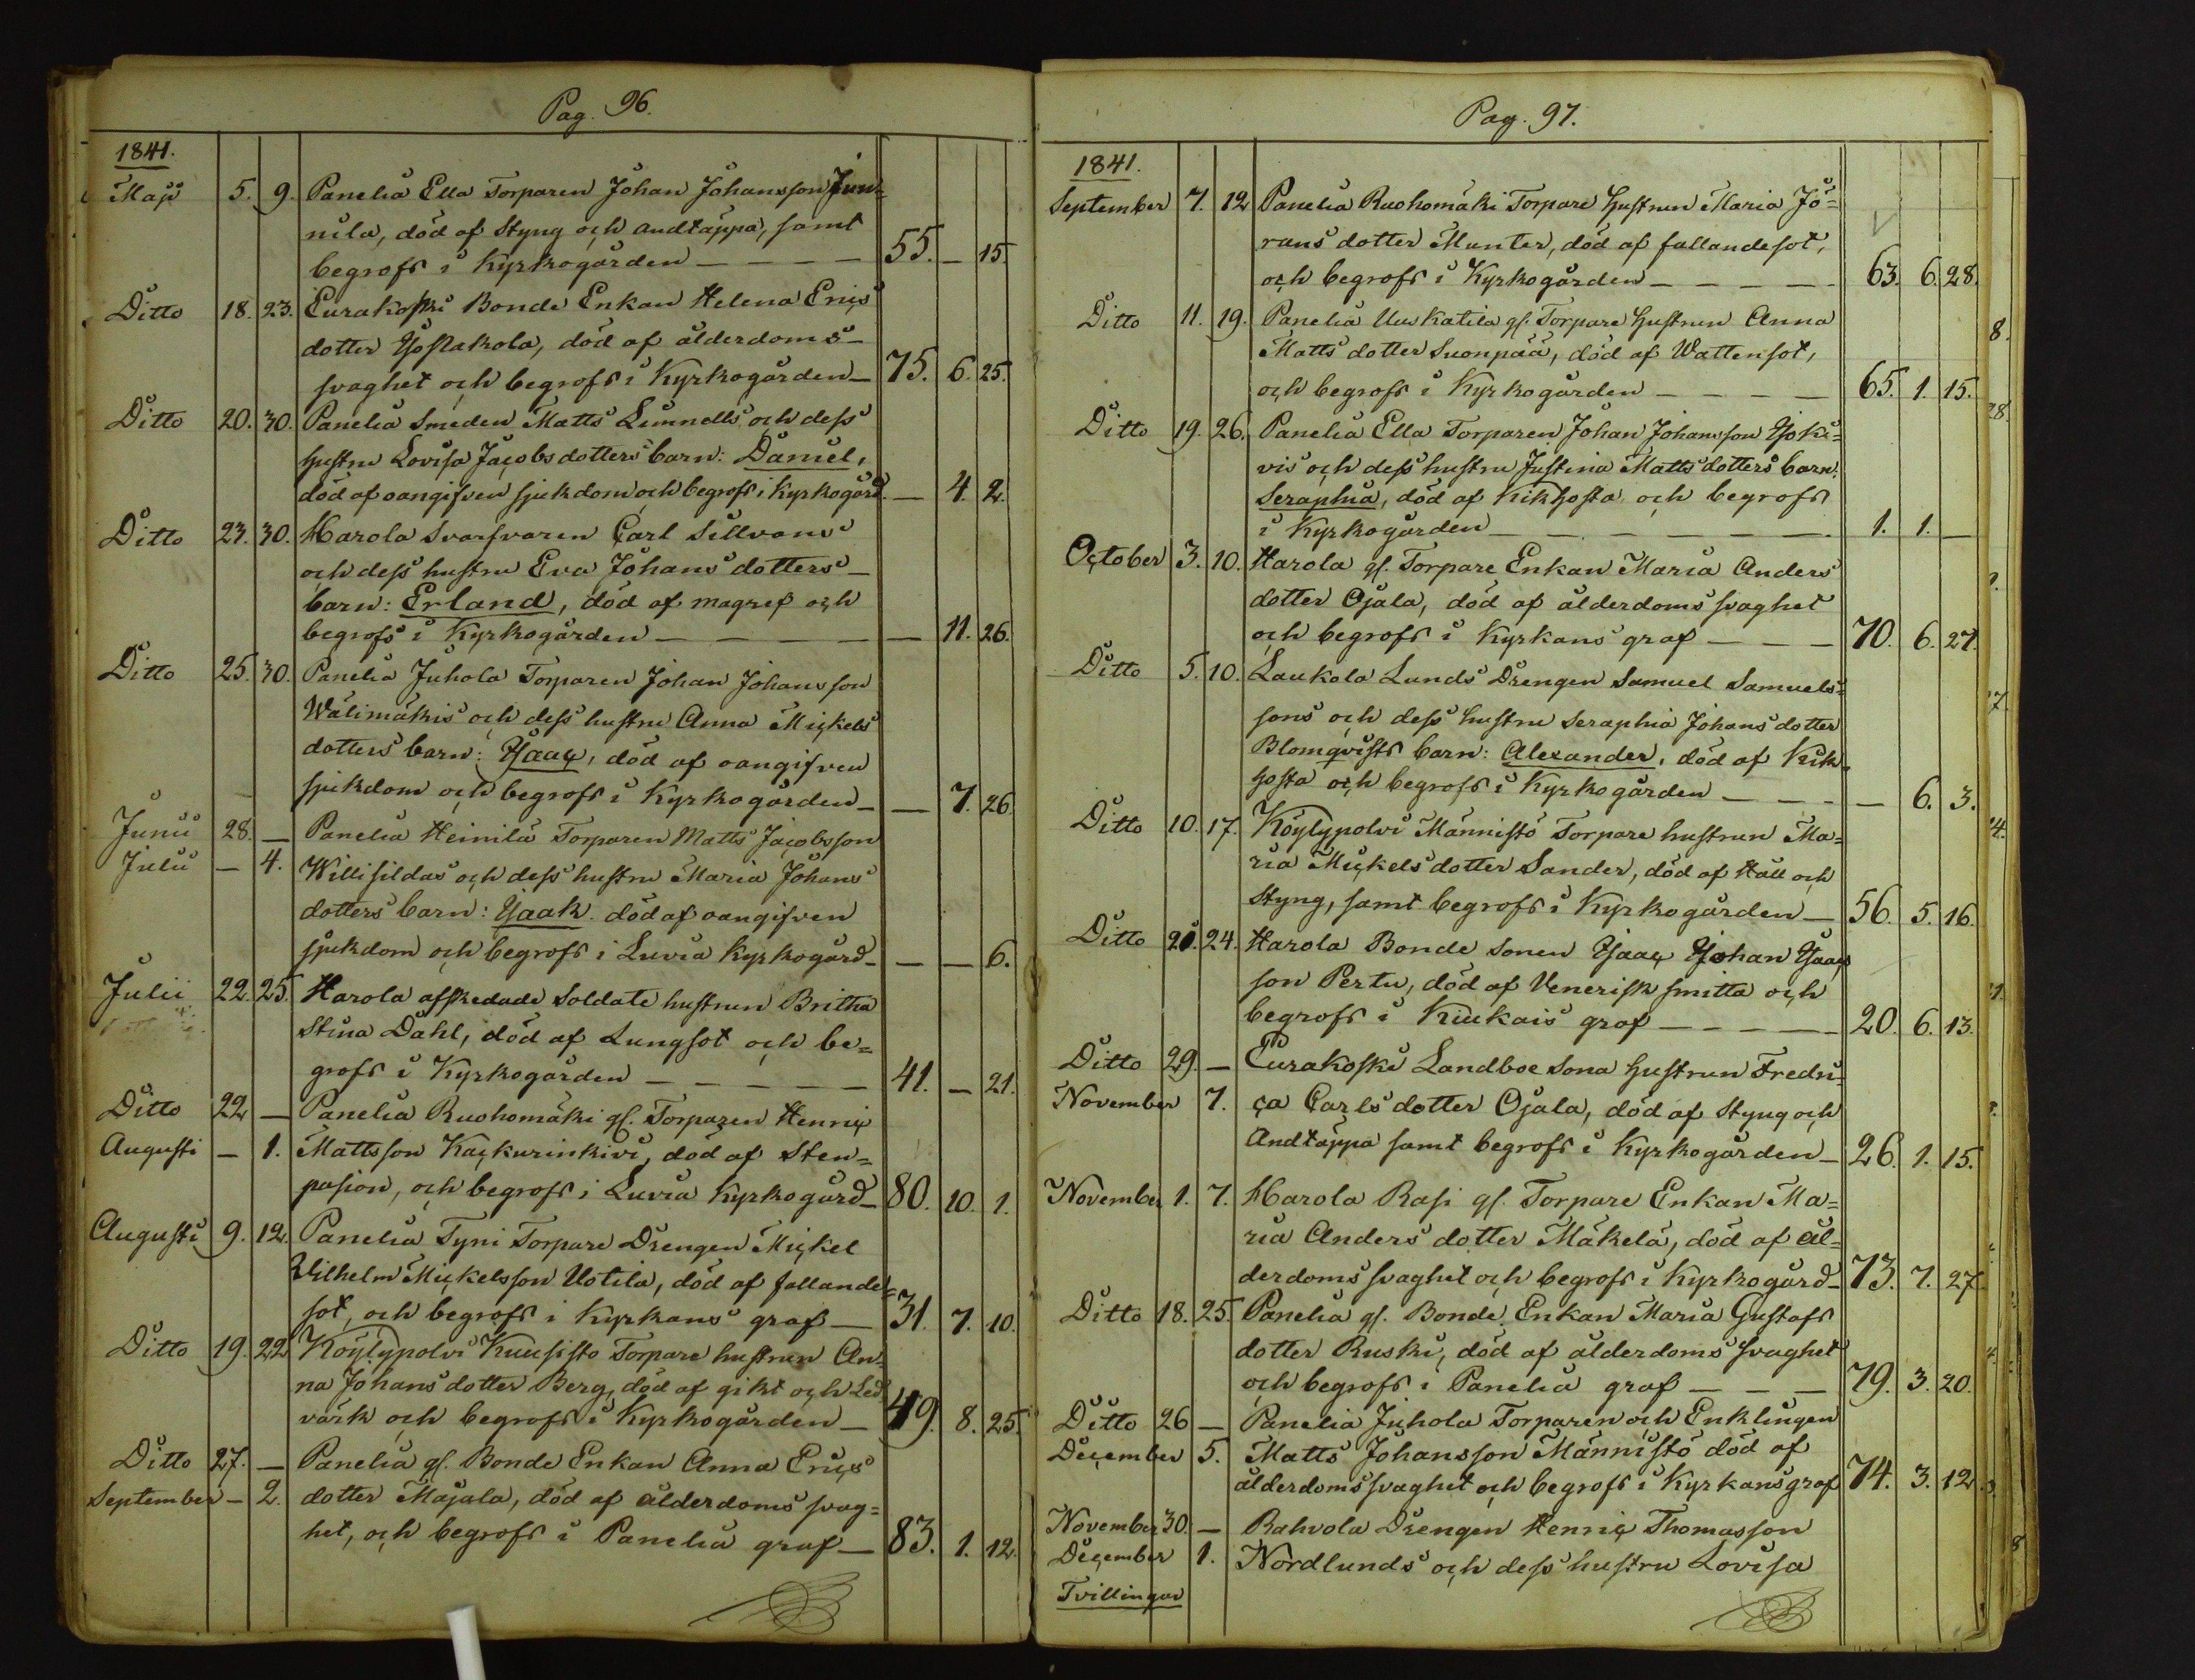 Pag. 96.
1841.
Maji 5. 9. Panelia Ella Torparen Johan Johansson Jun-
nila, död af Styng och andtäppa, samt
begrofs i Kyrkogården — — — — 55. — 15.
Ditto 18. 23. Eurakoski Bonde Enkan Helena Erics
dotter Yostakola, död af ålderdoms-
svaghet och begrofs i Kyrkogården — 75. 6. 25.
Ditto 20. 30. Panelia Smeden Matts Linnells och dess
hustru Lovisa Jacobsdotters barn: Daniel,
död af oangifven sjukdom och begrofs i Kyrkogård — 4. 2.
Ditto 23. 30. Harola Svarfvaren Carl Sillvons
och dess hustru Eva Johans dotters
barn: Erland, död af magref och
begrofs i Kyrkogården — — — — 11. 26.
Ditto 25. 30. Panelia Juhola Torparen Johan Johansson
Wälimäkis och dess hustru Anna Mickels
dotters barn: Isaac, död af oangifven
sjukdom och begrofs i Kyrkogården — — 7. 26.
Junii 28. — Panelia Heinilä Torparen Matts Jacobsson
Julii — 4. Willisildas och dess hustru Maria Johans
dotters barn: Isaak. död af oangifven
sjukdom och begrofs i Luvia Kyrkogård — — — 6.
Julii 22. 25. Harola afskedade Soldate hustrun Britha
Stina Dahl, död af Lungsot och be=
grofs i Kyrkogården — — — — — 41. — 21.
Ditto 22 — Panelia Ruohomäki gl. Torparen Henric
Augusti — 1. Mattsson Kackurinkivi, död af Sten=
pasion, och begrofs i Luvia Kyrkogård — 80. 10. 1.
Augusti 9. 12. Panelia Tyni Torpare Drengen Mickel
Wilhelm Mickelsson Uotila, död af fallande=
sot, och begrofs i Kyrkans graf — 31. 7. 10.
Ditto 19. 22 Köylypolvi Kuusisto Torpare hustrun An-
na Johans dotter Berg, död af gikt och Led
värk och begrofs i Kyrkogården — 49. 8. 25.
Ditto 27. — Panelia gl. Bonde Enkan Anna Erics
September — 2. dotter Majala, död af ålderdoms svag=
het, och begrofs i Panelia graf — 83. 1. 12.
Pag. 97.
1841.
September 7. 12 Panelia Ruohomäki Torpare Hustrun Maria Jö=
rans dotter Munter, död af fallandesot,
och begrofs i Kyrkogården — — — — — 63. 6. 28.
Ditto 11. 19. Panelia Uus Katila gl. Torpare Hustrun Anna
Matts dotter Suonpää, död af Wattensot,
och begrofs i Kyrkogården — — — — 65. 1. 15.
Ditto 19. 26. Panelia Ella Torparen Johan Johansson Yjoki=
vis och dess hustru Justina Matts dotters barn.
Seraphia, död af Kikhosta och begrofs
i Kyrkogården — — — — — — — 1. 1. —
October 3. 10. Harola gl. Torpare Enkan Maria Anders
dotter Ojala, död af ålderdoms svaghet
och begrofs i Kyrkans graf — — — 70. 6. 27.
Ditto 5. 10. Laukola Lunds Drengen Samuel Samuels=
sons och dess hustru Seraphia Johans dotter
Blomqvists barn: Alexander, död af Kik
hosta och begrofs i Kyrkogården — — — — 6. 3.
Ditto 10. 17. Köylypolvi Männistö Torpare hustrun Ma=
ria Mickels dotter Sander, död af Håll och
Styng, samt begrofs i Kyrkogården — 56. 5. 16.
Ditto 24. Harola Bonde Sonen Isaac Johan Isaacs
son Pertu, död af Venerisk smitta och
begrofs i Kiukais graf — — — — — 20. 6. 13.
Ditto 29. — Eurakoski Landboe Sona Hustrun Fredri=
November 7. ca Carls dotter Ojala, död af Styng och
Andtäppa samt begrofs i Kyrkogården — 26. 1. 15.
November 1. 7. Harola Rasi gl. Torpare Enkan Ma=
ria Anders dotter Mäkelä, död af ål=
derdoms svaghet och begrofs i Kyrkogård — 73. 7. 27.
Ditto 18. 25. Panelia gl. Bonde Enkan Maria Gustafs
dotter Ruski, död af ålderdoms svaghet
och begrofs i Panelia graf — — — 79. 3. 20.
Ditto 26 — Panelia Juhola Torparen och Enklingen
December 5. Matts Johansson Männistö död af
ålderdoms svaghet och begrofs i Kyrkans graf 74. 3. 12.
November 30. — Rahvola Drengen Henric Thomasson
December 1. Nordlunds och dess hustru Lovisa
Tvillingar